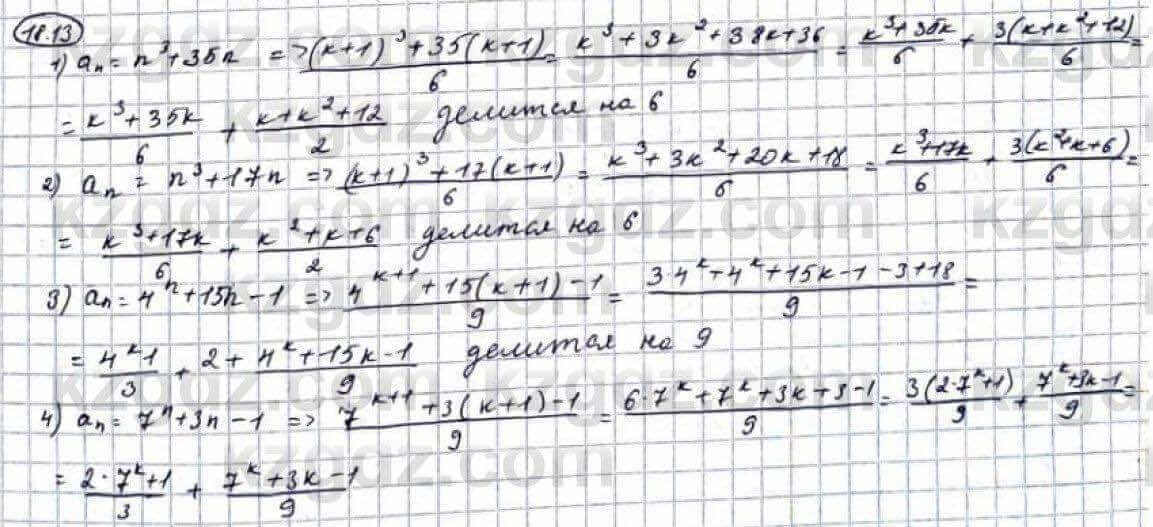 18.13
1) aₙ = n³+35n => (k+1)³+35(k+1)/6 = k³+3k²+38k+36/6 = k³+35k/6 + 3(k+k²+12)/6 =
= k³+35k/6 + k+k²+12/2 делится на 6
2) aₙ = n³+17n => (k+1)³+17(k+1)/6 = k³+3k²+20k+18/6 = k³+17k/6 + 3(k²+k+6)/6 =
= k³+17k/6 + k²+k+6/2 делится на 6
3) aₙ = 4ⁿ+15n-1 => 4ᵏ⁺¹+15(k+1)-1/9 = 3·4ᵏ+4ᵏ+15k-1-3+18/9 =
= 4ᵏ-1/3 + 2 + 4ᵏ+15k-1/9 делится на 9
4) aₙ = 7ⁿ+3n-1 => 7ᵏ⁺¹+3(k+1)-1/9 = 6·7ᵏ+7ᵏ+3k+3-1/9 = 3(2·7ᵏ+1)/9 + 7ᵏ+3k-1/9 =
= 2·7ᵏ+1/3 + 7ᵏ+3k-1/9
kzgdz.com